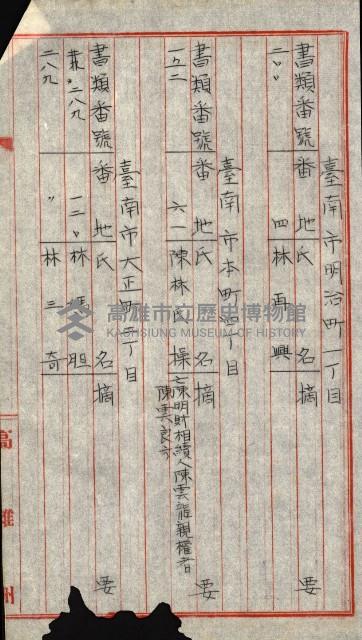 臺南市明治町一丁目
書類番號 番地 氏名 摘要
二〃〃 四 林再興
臺南市本町四丁目
書類番號 番地 氏名 摘要
一八二 六一 陳林氏操 亡陳明財相續人陳雲龍親權者
陳雲良方
臺南市大正町二丁目
書類番號 番地 氏名 摘要
二八九 一二〃 林馮胆
二八九 〃 林三奇
高雄州
高雄市立歷史博物館
KAOHSIUNG MUSEUM OF HISTORY